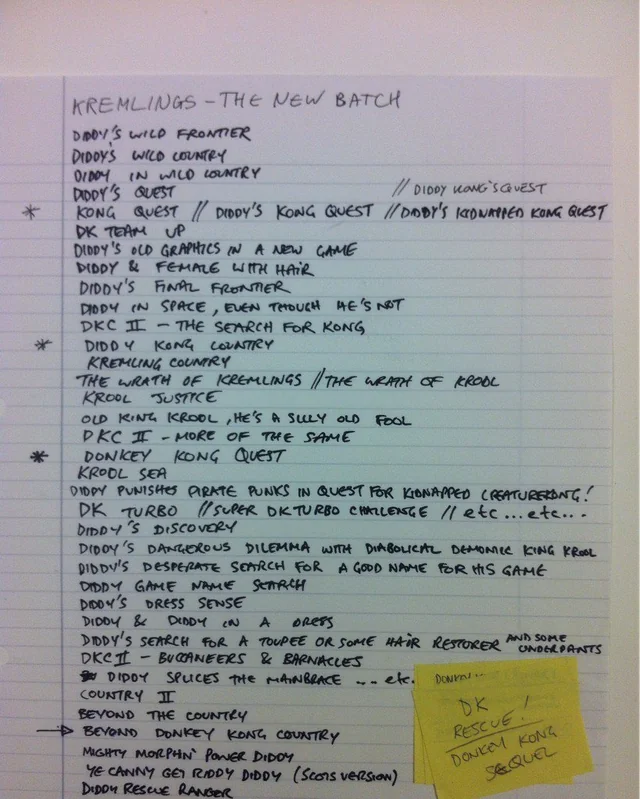 KREMLINGS - THE NEW BATCH
DIDDY'S WILD FRONTIER
DIDDY'S WILD COUNTRY
DIDDY IN WILD COUNTRY
DIDDY'S QUEST // DIDDY KONG'S QUEST
* KONG QUEST // DIDDY'S KONG QUEST // DIDDY'S KIDNAPPED KONG QUEST
DK TEAM UP
DIDDY'S OLD GRAPHICS IN A NEW GAME
DIDDY & FEMALE WITH HAIR
DIDDY'S FINAL FRONTIER
DIDDY IN SPACE, EVEN THOUGH HE'S NOT
DKC II - THE SEARCH FOR KONG
* DIDDY KONG COUNTRY
KREMLING COUNTRY
THE WRATH OF KREMLINGS // THE WRATH OF KROOL
KROOL JUSTICE
OLD KING KROOL, HE'S A SILLY OLD FOOL
DKC II - MORE OF THE SAME
* DONKEY KONG QUEST
KROOL SEA
DIDDY PUNISHES PIRATE PUNKS IN QUEST FOR KIDNAPPED CREATUREKONG!
DK TURBO // SUPER DK TURBO CHALLENGE // etc...etc...
DIDDY'S DISCOVERY
DIDDY'S DANGEROUS DILEMMA WITH DIABOLICAL DEMONIC KING KROOL
DIDDY'S DESPERATE SEARCH FOR A GOOD NAME FOR HIS GAME
DIDDY GAME NAME SEARCH
DIDDY'S DRESS SENSE
DIDDY & DIDDY IN A DRESS
DIDDY'S SEARCH FOR A TOUPEE OR SOME HAIR RESTORER AND SOME UNDERPANTS
DKC II - BUCCANEERS & BARNACLES
DIDDY SPLICES THE MAINBRACE ... etc.
COUNTRY II
BEYOND THE COUNTRY
→ BEYOND DONKEY KONG COUNTRY
MIGHTY MORPHIN' POWER DIDDY
YE CANNY GET RIDDY DIDDY (SCOTS VERSION)
DIDDY RESCUE RANGER
DONKEY...
DK
RESCUE!
DONKEY KONG
SEQUEL